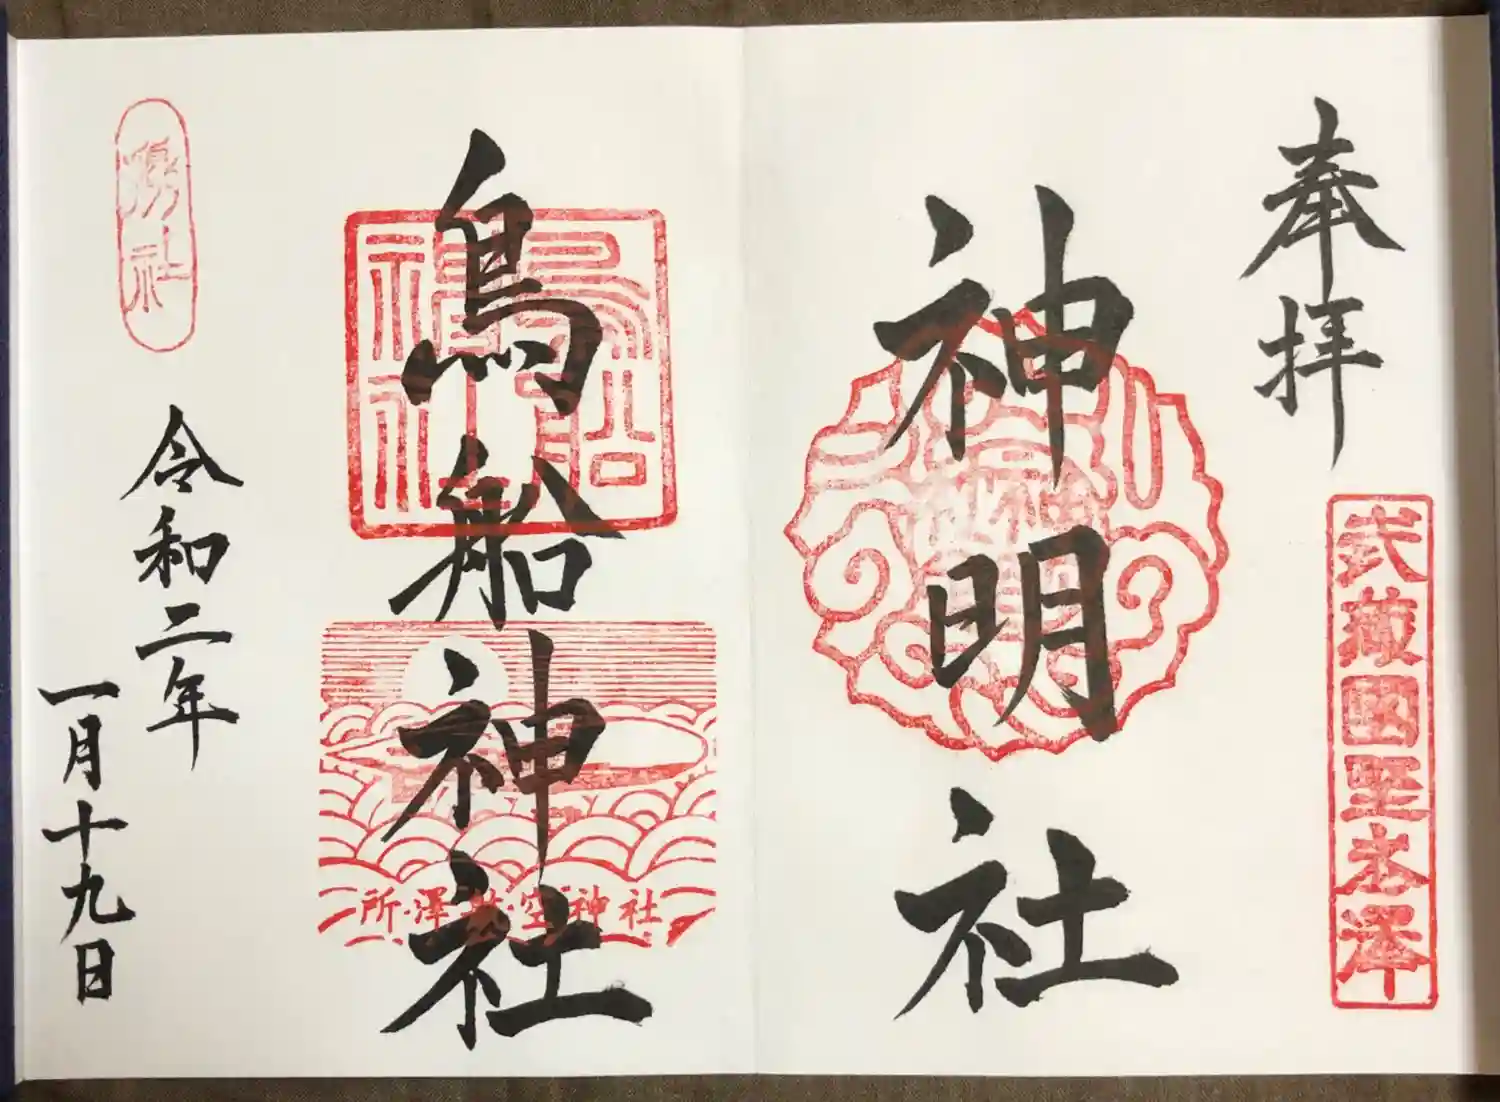 奉拝
武藏國埜老澤
神明社
鳥船神社
鳥船
神社
所澤航空神社
令和二年
一月十九日